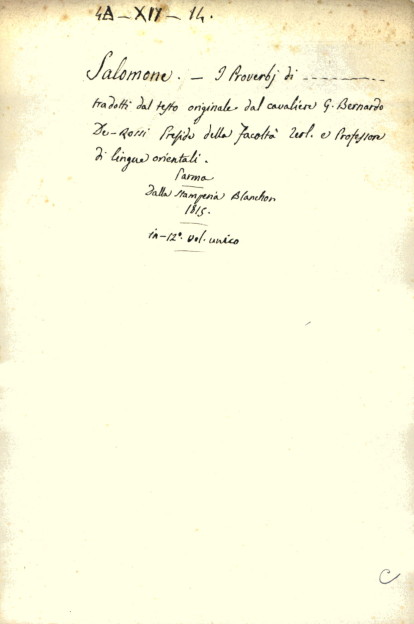 4A - XIV - 14.
Salomone. - I Proverbj di ----------
tradotti dal testo originale dal cavaliere G. Bernardo
De-Rossi Preside della facoltà Teol. e Professore
di lingue orientali.
Parma
Dalla Stamperia Blanchon
1815.
in-12º. vol. unico
C